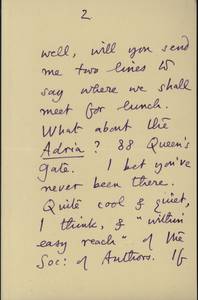 2
well, will you send
me two lines to
say where we shall
meet for lunch.
What about the
Adria? 88 Queen's
Gate. I bet you've
never been there.
Quite cool & quiet,
I think, & "within
easy reach" of the
Soc: of Authors. If